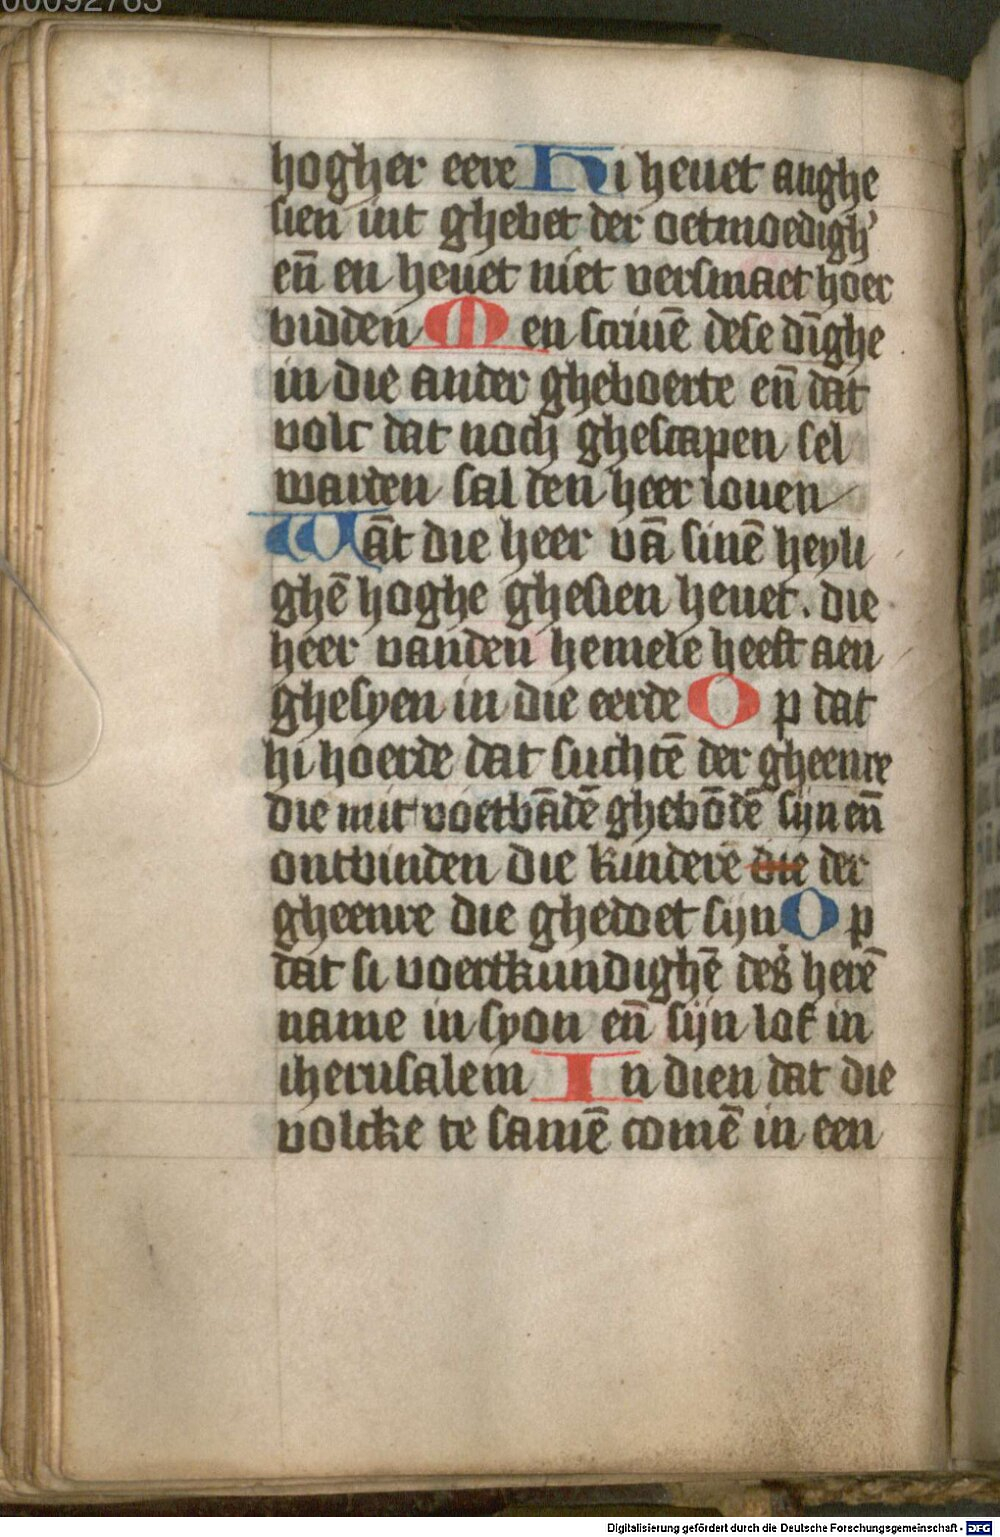 00092763
hogher eere Hi heuet anghe
sien int ghebet der oetmoedigh'
en̄ en heuet niet versmaet hoer
bidden Men scriuē dese dīghe
in die ander gheboerte en̄ dat
volc dat noch ghescapen sel
warden sal den heer louen
Wāt die heer vā sinē heyli
ghē hoghe ghesien heuet. die
heer vanden hemele heeft aen
ghesyen in die eerde Op dat
hi hoerde dat suchtē der gheenre
die mit voetbādē ghebōdē sijn en̄
ontbinden die kindere die der
gheenre die ghedoet sijn Op
dat si voertkundighē des herē
name in syon en̄ sijn lof in
iherusalem In dien dat die
volcke te samē comē in een
Digitalisierung gefördert durch die Deutsche Forschungsgemeinschaft - DFG